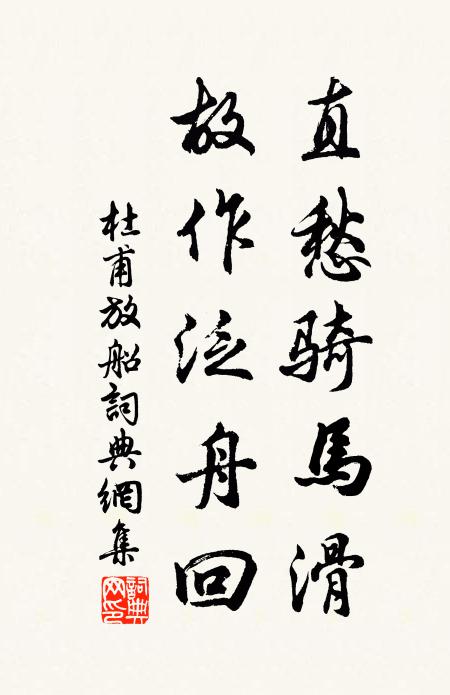 直愁騎馬滑
故作泛舟回
杜甫放船詞典網集
詞典網印